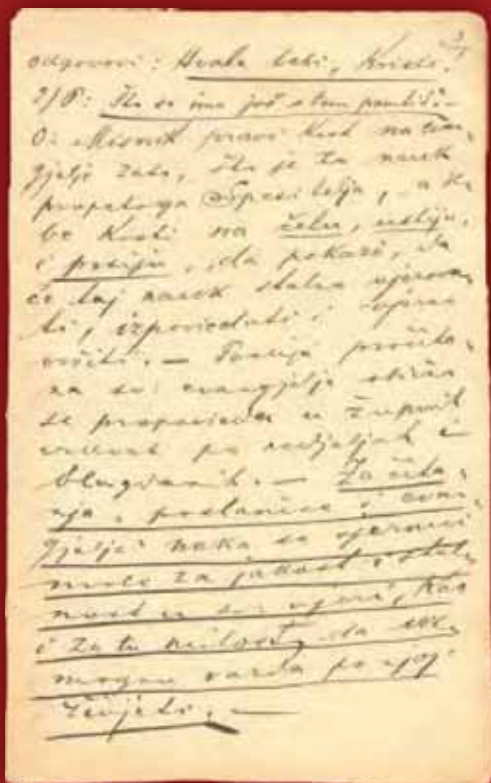 odgovori: Hvala tebi, Kriste.
2) P: Što se ima još o tom pamtiti? –
O: Misnik pravi križ na evan-
gjelje zato, što je to nauk
propetoga Spasitelja, a
se križi na čelu, ustiju,
i prsiju, da pokaže, da
će taj nauk stalno vjerova-
ti, izpoviedati i
vršiti. – Poslije pročita-
na sv. evangjelja obično
se propovieda u župnih
crkvah po nedjeljah i
blagdanih. – Za čita-
nja, poslanice i evan-
gjelja neka se vjernici
mole za jakost, stal-
nost u sv. vjeri, kao
i za tu milost, da uz-
mognu vazda po njoj
živjeti. –